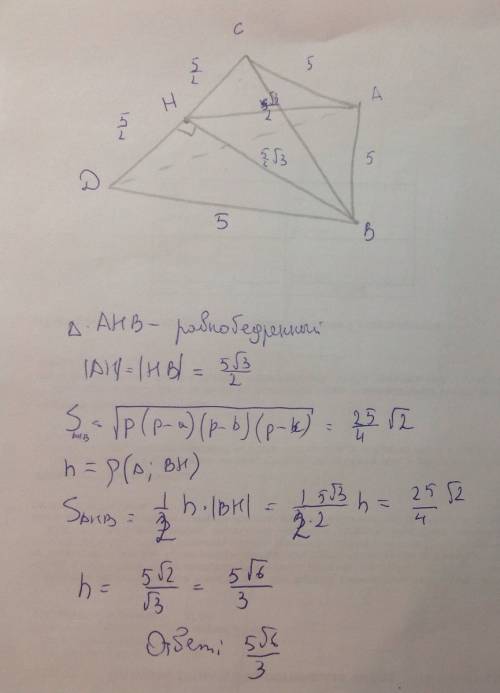 C
5/2
5
H
5√3/2
A
5/2
5/2 √3
5
D
5
B
Δ AHB – равнобедренный
|AH| = |HB| = 5√3/2
S_AHB = √(p(p-a)(p-b)(p-c)) = 25/4 √2
h = ρ(A; BH)
S_AHB = 1/2 h·|BH| = 1·5√3/(2·2) h = 25/4 √2
h = 5√2/√3 = 5√6/3
Ответ: 5√6/3